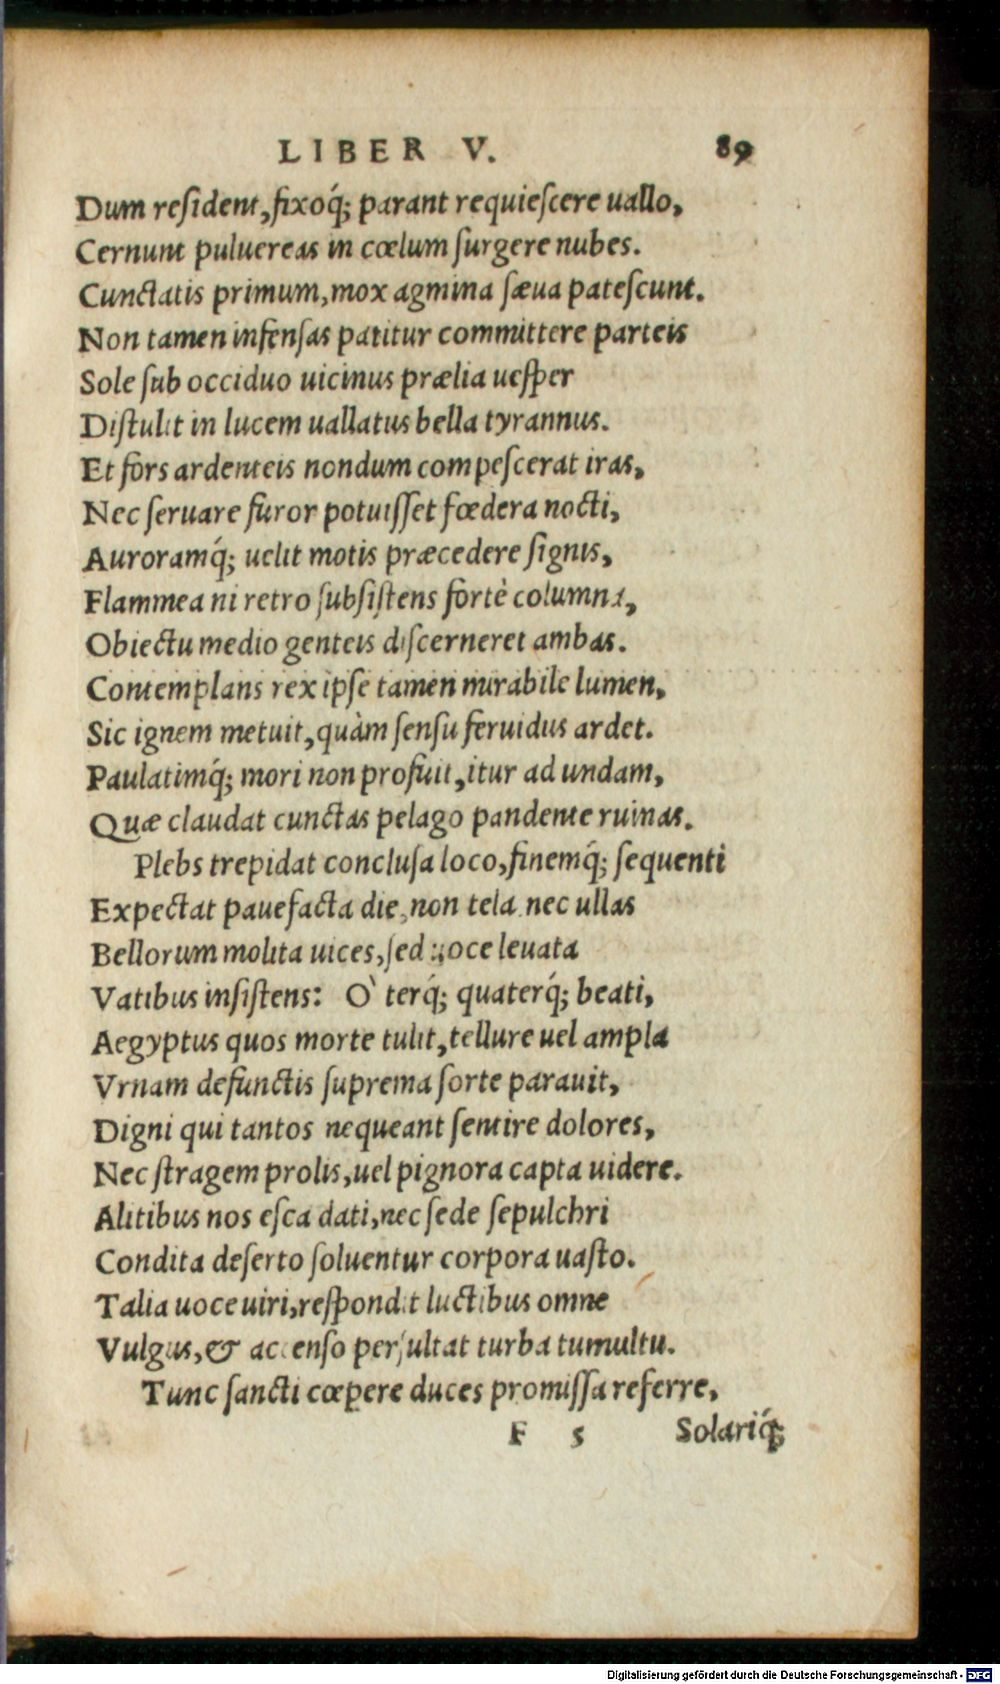 LIBER V. 89
Dum resident, fixoq́; parant requiescere uallo,
Cernunt puluereas in cœlum surgere nubes.
Cunctatis primum, mox agmina sæua patescunt.
Non tamen infensas patitur committere parteis
Sole sub occiduo uicinus prælia uesper
Distulit in lucem uallatus bella tyrannus.
Et fors ardenteis nondum compescerat iras,
Nec seruare furor potuisset fœdera nocti,
Auroramq́; uelit motis præcedere signis,
Flammea ni retro subsistens fortè columna,
Obiectu medio genteis discerneret ambas.
Contemplans rex ipse tamen mirabile lumen,
Sic ignem metuit, quàm sensu feruidus ardet.
Paulatimq́; mori non profuit, itur ad undam,
Quæ claudat cunctas pelago pandente ruinas.
Plebs trepidat conclusa loco, finemq́; sequenti
Expectat pauefacta die, non tela nec ullas
Bellorum molita uices, sed uoce leuata
Vatibus insistens: Ò terq́; quaterq́; beati,
Aegyptus quos morte tulit, tellure uel ampla
Vrnam defunctis suprema sorte parauit,
Digni qui tantos nequeant sentire dolores,
Nec stragem prolis, uel pignora capta uidere.
Alitibus nos esca dati, nec sede sepulchri
Condita deserto soluentur corpora uasto.
Talia uoce uiri, respondit luctibus omne
Vulgus, & accenso persultat turba tumultu.
Tunc sancti cœpere duces promissa referre,
F 5 Solariq́;
Digitalisierung gefördert durch die Deutsche Forschungsgemeinschaft - DFG